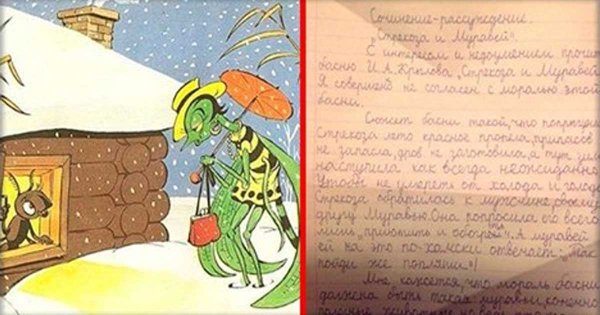 Сочинение-рассуждение.
„Стрекоза и Муравей".
С интересом и недоумением прочит
басню И.А.Крылова „Стрекоза и Муравей
Я совершенно не согласен с моралью этой
басни.
Сюжет басни такой, что попрыгун
Стрекоза лето красное пропела, припасов
не запасла, дров не заготовила, а тут зим
наступила как всегда неожиданно.
Чтобы не умереть от холода и голода
Стрекоза обратилась к мужчине, своему
другу Муравью. Она попросила его всего
лишь „прикормить и обогреть". А муравей
ей на это по-хамски отвечает: „Так
пойди же попляши"!
Мне кажется, что мораль басни
должна быть такая: муравьи, конечно,
полезные животные, но ведь